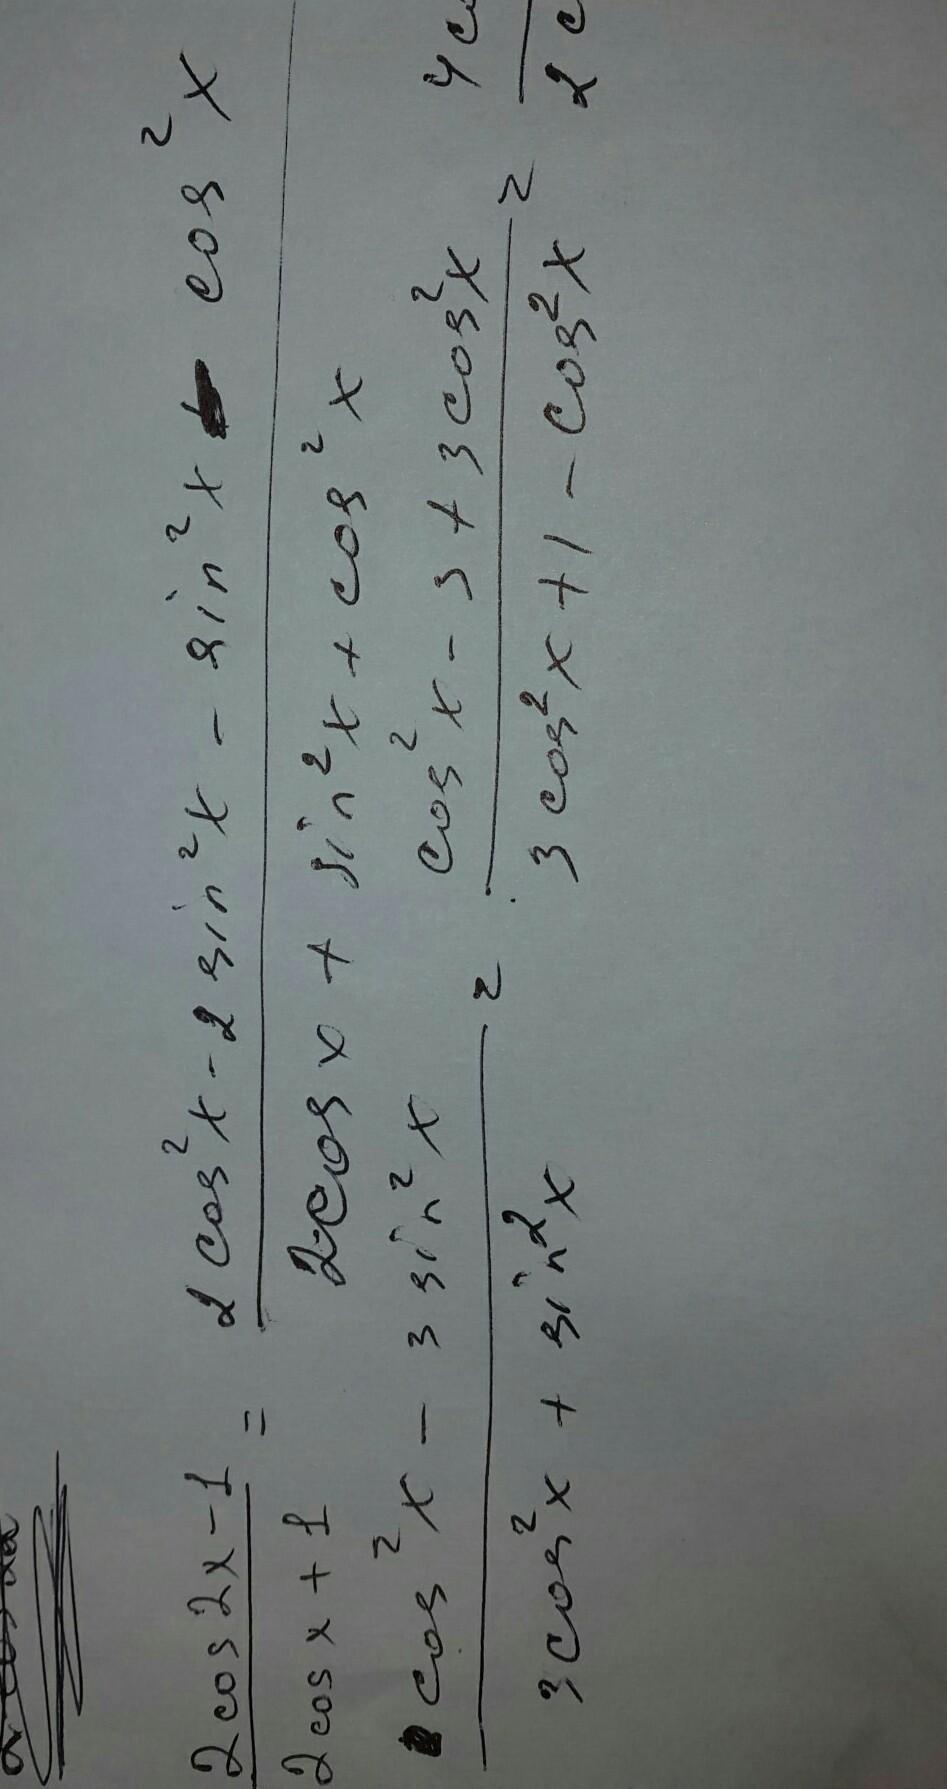 2cos2x-1 / 2cosx+1 = 2cos²x-2sin²x-sin²x-cos²x / 2cosx+sin²x+cos²x
cos²x-3sin²x / 3cos²x+sin²x = cos²x-3+3cos²x / 3cos²x+1-cos²x = 4c / 2c